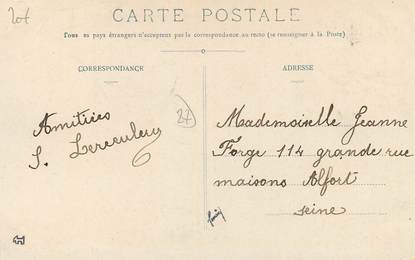 CARTE POSTALE
Tous les pays étrangers n'acceptent pas la correspondance au recto (se renseigner à la Poste)
CORRESPONDANCE
ADRESSE
Amitiées
S.
27
Mademoiselle Jeanne
Forge 114 grande rue
maisons Alfort
seine